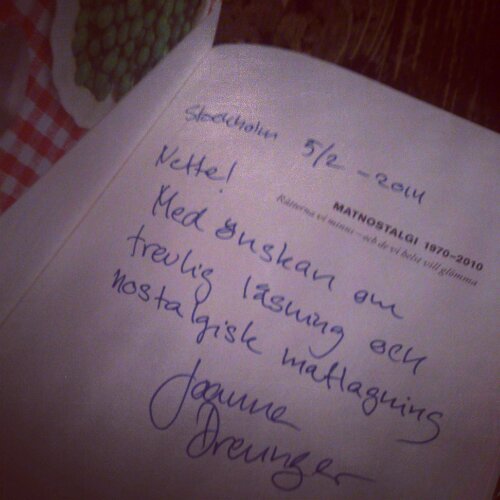 Stockholm 5/2 - 2014
Nette!
MATNOSTALGI 1970–2010
Rätterna vi minns – och de vi helst vill glömma
Med önskan om
trevlig läsning och
nostalgisk matlagning
Joanna
Dreunger